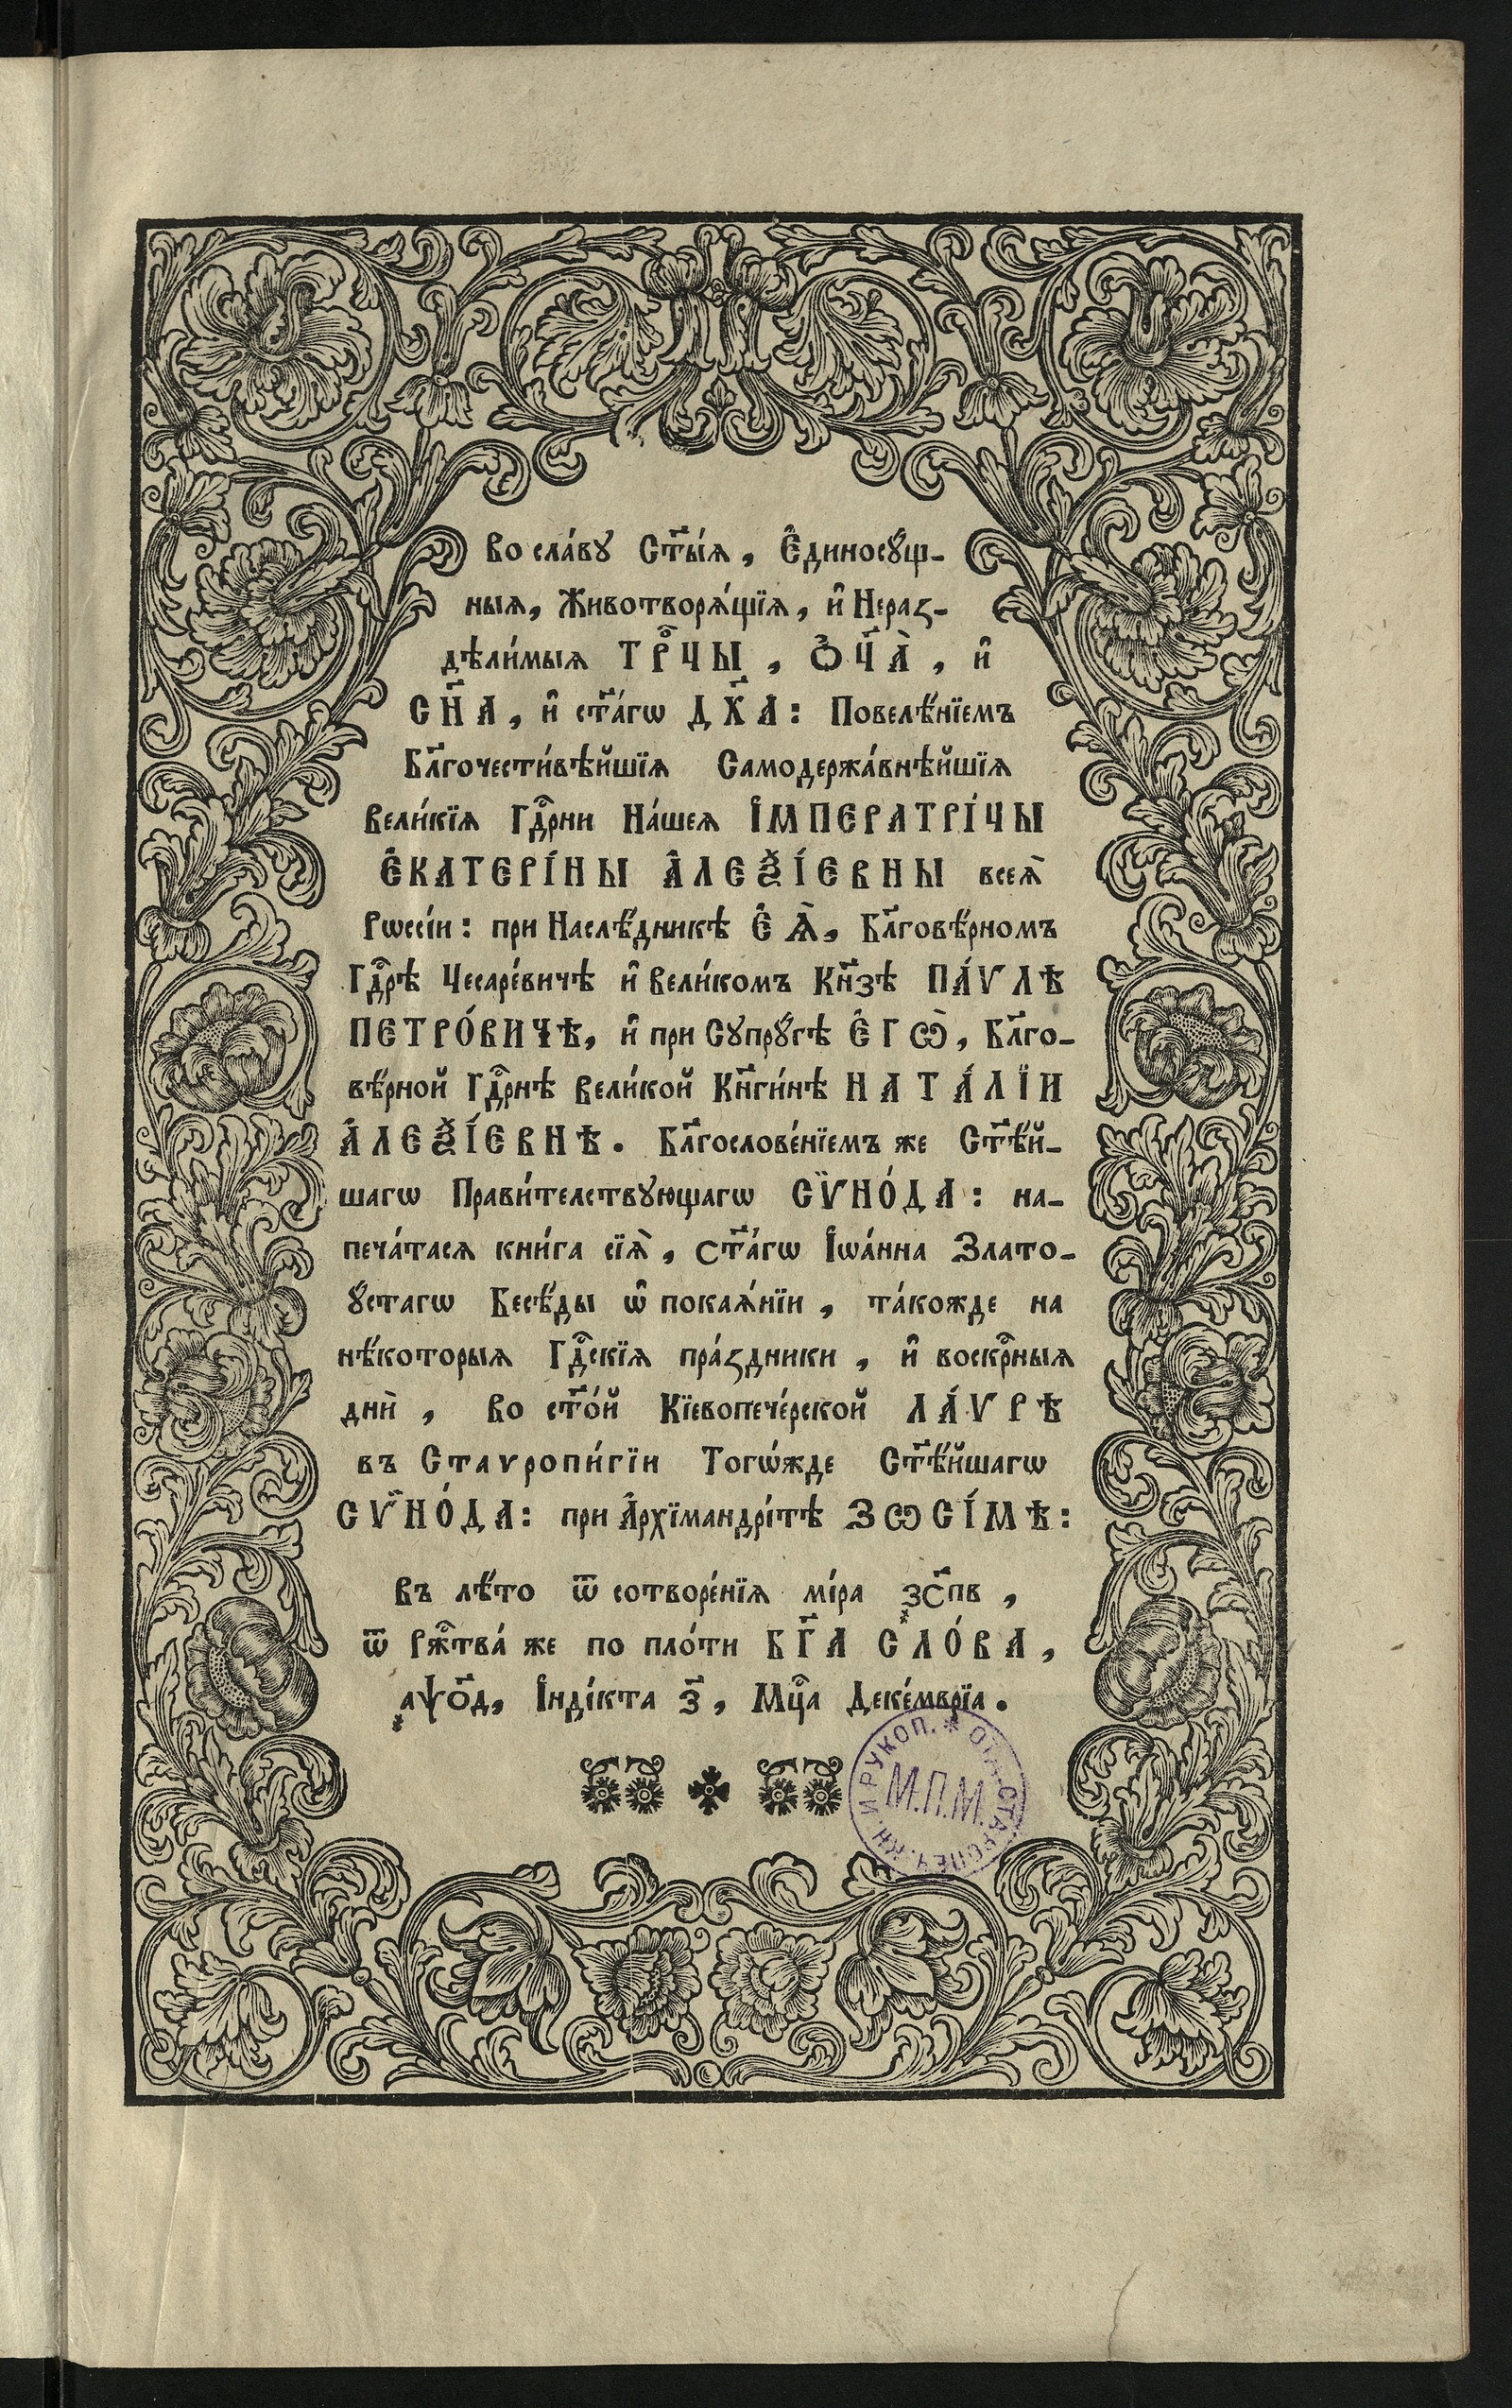 Во сла́вꙋ Ст҃ы́ѧ, Є҆диносꙋ́щ-
ныѧ, Животворѧ́щїѧ, и҆ Нераз-
дѣли́мыѧ ТРⷪ҇ЦЫ, Ѻ҆Ц҃А̀, и҆
СН҃А, и҆ ст҃а́гѡ ДХ҃А: Повелѣ́нїемъ
Бл҃гочести́вѣйшїѧ Самодержа́внѣйшїѧ
Вели́кїѧ Гдⷭ҇рни На́шеѧ І҆МПЕРАТРІ́ЦЫ
Є҆КАТЕРІ́НЫ А҆ЛЕѮІ́ЕВНЫ всеѧ̀
Рѡссі́и: при Наслѣ́дникѣ Є҆Ѧ̀, Бл҃говѣ́рномъ
Гдⷭ҇рѣ Цесаре́вичѣ и҆ Вели́комъ Кн҃зѣ ПА́ѴЛѢ
ПЕТРО́ВИЧѢ, и҆ при Сꙋпрꙋ́гѣ Є҆ГѠ̀, Бл҃го-
вѣ́рной Гдⷭ҇рнѣ Вели́кой Кн҃ги́нѣ НАТА́ЛЇИ
А҆ЛЕѮІ́ЕВНѢ. Бл҃гослове́нїемъ же Ст҃ѣ́й-
шагѡ Прави́телствꙋющагѡ СѴ̈НО́ДА: на-
печа́тасѧ кни́га сїѧ̀, ст҃а́гѡ І҆ѡа́нна Злато-
ꙋ́стагѡ Бесѣ́ды ѡ҆ покаѧ́нїи, та́кожде на
нѣ́которыѧ Гдⷭ҇скїѧ пра́здники, и҆ воскрⷭ҇ныѧ
дни̑, Во ст҃о́й Кїевопече́рской ЛА́ѴРѢ
въ Ставропи́гїи Тогѡ́жде Ст҃ѣ́йшагѡ
СѴ̈НО́ДА: при А҆рхїмандрі́тѣ ЗѠСІ́МѢ:
Въ лѣ́то ѿ сотворе́нїѧ мі́ра ҂зс҃пв,
ѿ Ржⷭ҇тва́ же по пло́ти БГ҃А СЛО́ВА,
҂аѱо҃д, І҆нді́кта з҃, Мцⷭ҇а Деке́мврїа.
ОТД. СТАРОПЕЧ. КН. И РУКОП.
М.П.М.